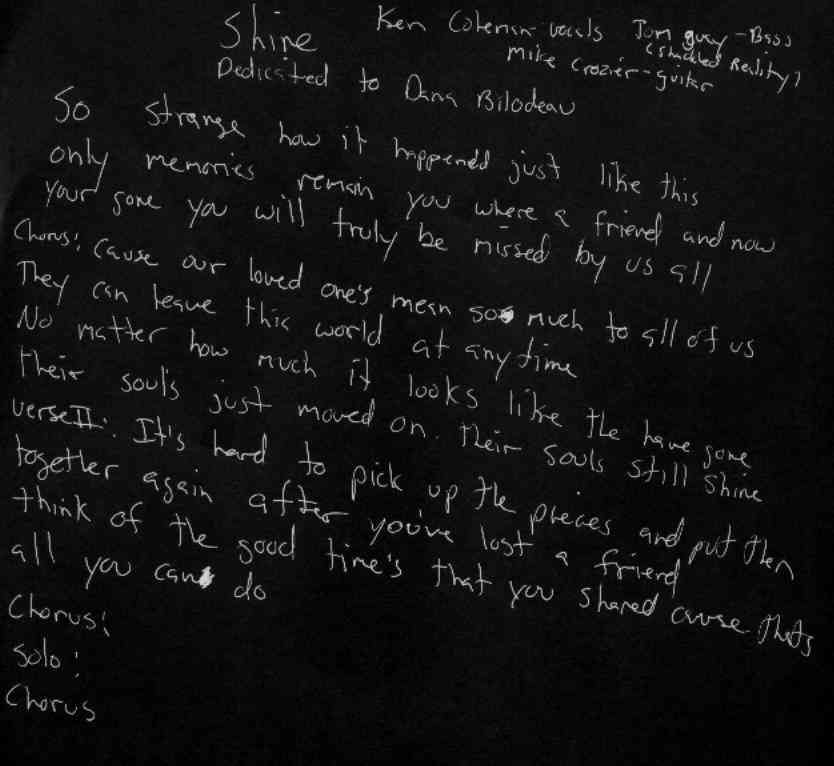 Shine
Ken Coleman-vocals Tom guay-Bass
(shackled Reality)
Mike Crozier-guitar
Dedicated to Dana Bilodeau
So strange how it happened just like this
only memories remain you where a friend and now
your gone you will truly be missed by us all
Chorus: cause our loved one's mean so much to all of us
They can leave this world at anytime
No matter how much it looks like the have gone
their soul's just moved on. their souls still shine
verse II: It's hard to pick up the pieces and put then
together again after you've lost a friend
think of the good time's that you shared cause thats
all you can do
Chorus:
Solo:
Chorus